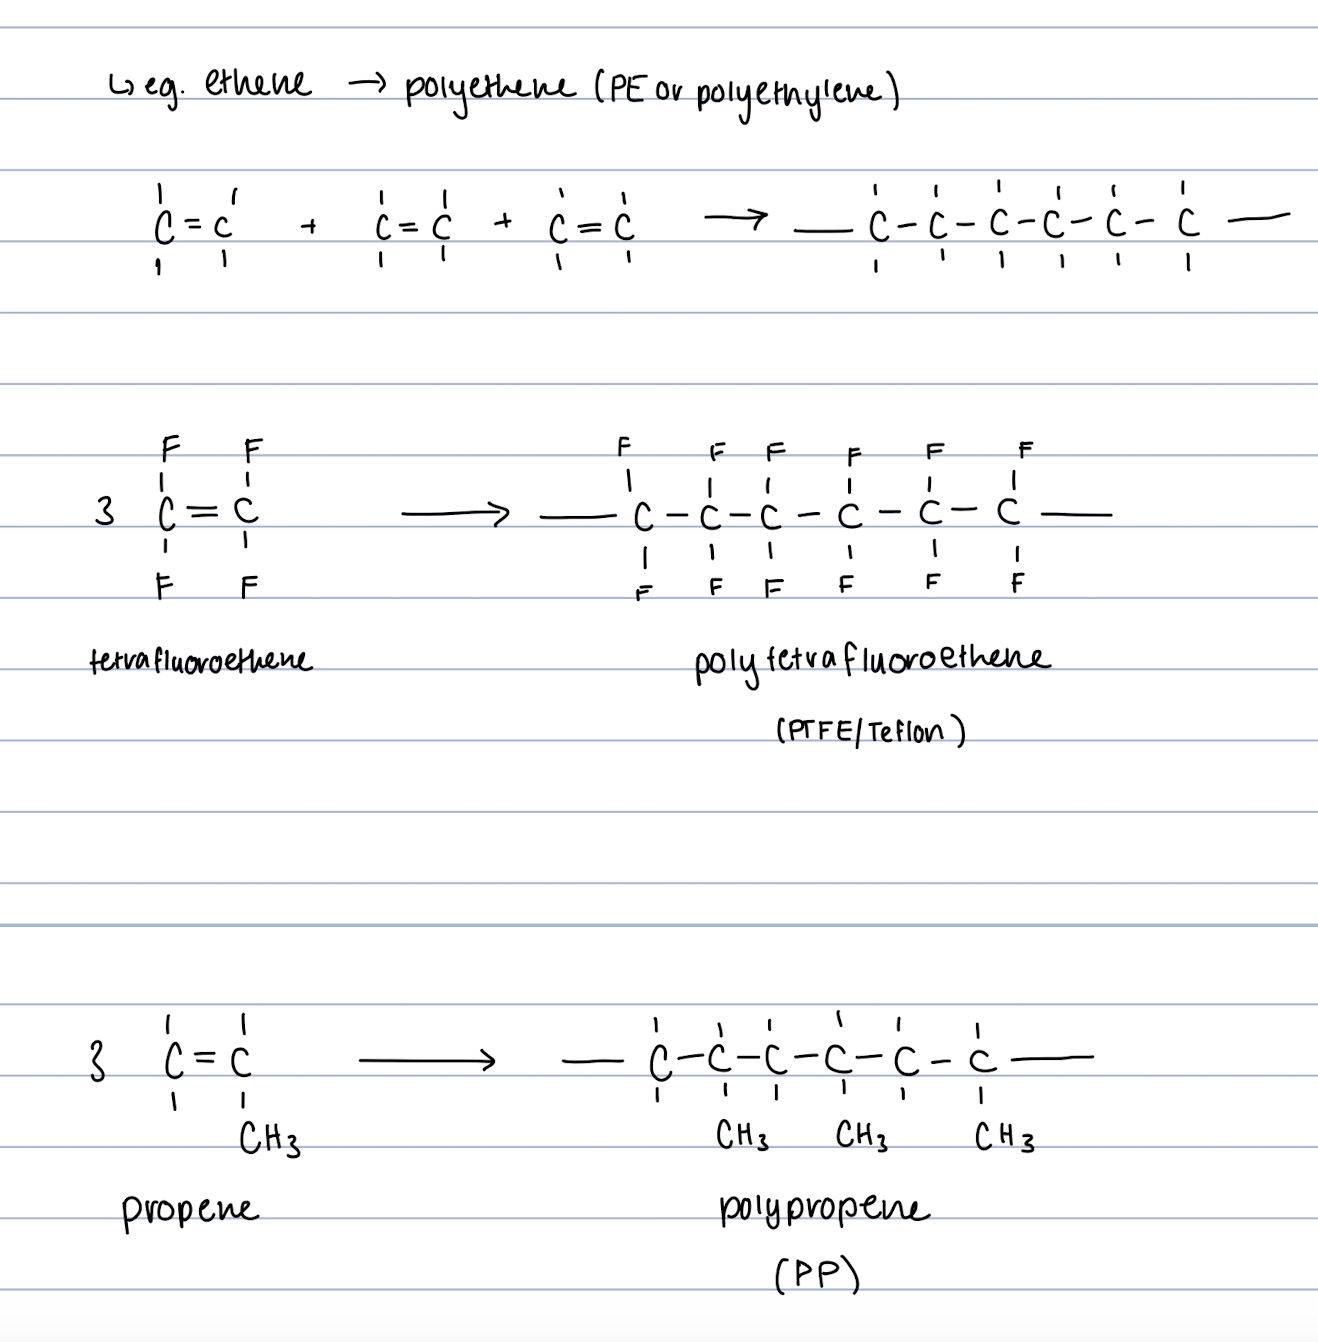 ↳ eg. ethene → polyethene (PE or polyethylene)
C = C + C = C + C = C → — C - C - C - C - C - C —
F F F F F F F F
3 C = C → — C - C - C - C - C - C —
F F F F F F F F
tetrafluoroethene polytetrafluoroethene
(PTFE/Teflon)
3 C = C → — C - C - C - C - C - C —
CH3 CH3 CH3 CH3
propene polypropene
(PP)